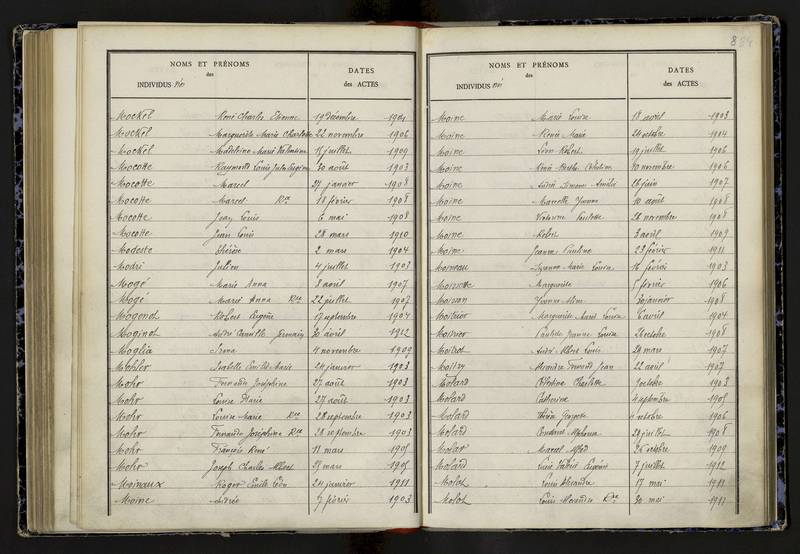 NOMS ET PRÉNOMS
des
INDIVIDUS nés
DATES
des ACTES
Mockel René Charles Etienne 19 décembre 1904
Mockel Marguerite Marie Charlotte 22 novembre 1906
Mockel Madeleine Marie 15 juillet 1909
Mocotte Raymonde Louis 30 août 1903
Mocotte Marcel 27 janvier 1908
Mocotte Marcel Rce 18 février 1908
Mocotte Jean Louis 6 mai 1908
Mocotte Jean Louis 28 mars 1910
Modeste Thérèse 2 mars 1904
Modri Julien 4 juillet 1903
Mogé Marie Anna 8 août 1907
Mogé Marie Anna Rce 22 juillet 1907
Mogenot Robert Eugène 17 septembre 1904
Moginot André Camille Germain 30 avril 1912
Moglia Irena 4 novembre 1909
Mohler Isabelle Marie 24 janvier 1903
Mohr Fernande Joséphine 27 août 1903
Mohr Louise Marie 27 août 1903
Mohr Louise Marie Rce 28 septembre 1903
Mohr Fernande Joséphine Rce 28 septembre 1903
Mohr François René 11 mars 1905
Mohr Joseph Charles Albert 25 mars 1905
Moinaux Roger Emile 24 janvier 1911
Moine Aimée 7 février 1903
884
NOMS ET PRÉNOMS
des
INDIVIDUS nés
DATES
des ACTES
Moine Marie Louise 18 avril 1903
Moine René Marie 24 octobre 1904
Moine Léon Robert 19 juillet 1906
Moine René 30 novembre 1906
Moine André 26 juin 1907
Moine Marcelle Yvonne 10 août 1908
Moine Victorine Paulette 26 novembre 1908
Moine Robert 3 avril 1909
Moine Jeanne Pauline 23 février 1911
Moineau Suzanne Marie Louise 16 février 1903
Marguerite 5 février 1906
Moisson Yvonne 30 janvier 1908
Marguerite Louise 6 avril 1904
Paulette Jeanne Louise 26 octobre 1908
Moitrot André Albert Louis 29 mars 1907
Alexandre Fernand Jean 22 avril 1907
Molard Célestine Charlotte 9 octobre 1903
Molard Catherine 4 septembre 1905
Molard 4 octobre 1906
Molard Alphonse 28 juillet 1908
Molard Marcel Alfred 26 octobre 1909
Molard 7 juillet 1912
Molot Louis Alexandre 17 mai 1911
Molot Louis Alexandre Rce 30 mai 1911